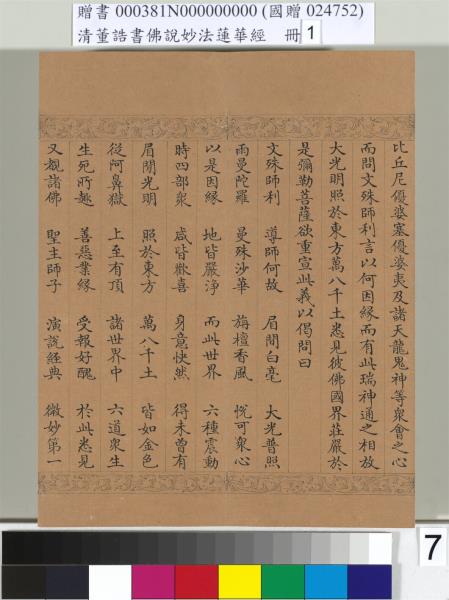 贈書 000381N000000000 (國贈 024752)
清董誥書佛說妙法蓮華經 冊 1
比丘尼優婆塞優婆夷及諸天龍鬼神等眾會之心
而問文殊師利言以何因緣而有此瑞神通之相放
大光明照於東方萬八千土悉見彼佛國界莊嚴於
是彌勒菩薩欲重宣此義以偈問曰
文殊師利 導師何故 眉間白毫 大光普照
雨曼陀羅 曼殊沙華 旃檀香風 悅可眾心
以是因緣 地皆嚴淨 而此世界 六種震動
時四部眾 咸皆歡喜 身意快然 得未曾有
眉間光明 照於東方 萬八千土 皆如金色
從阿鼻獄 上至有頂 諸世界中 六道眾生
生死所趣 善惡業緣 受報好醜 於此悉見
又覩諸佛 聖主師子 演說經典 微妙第一
7